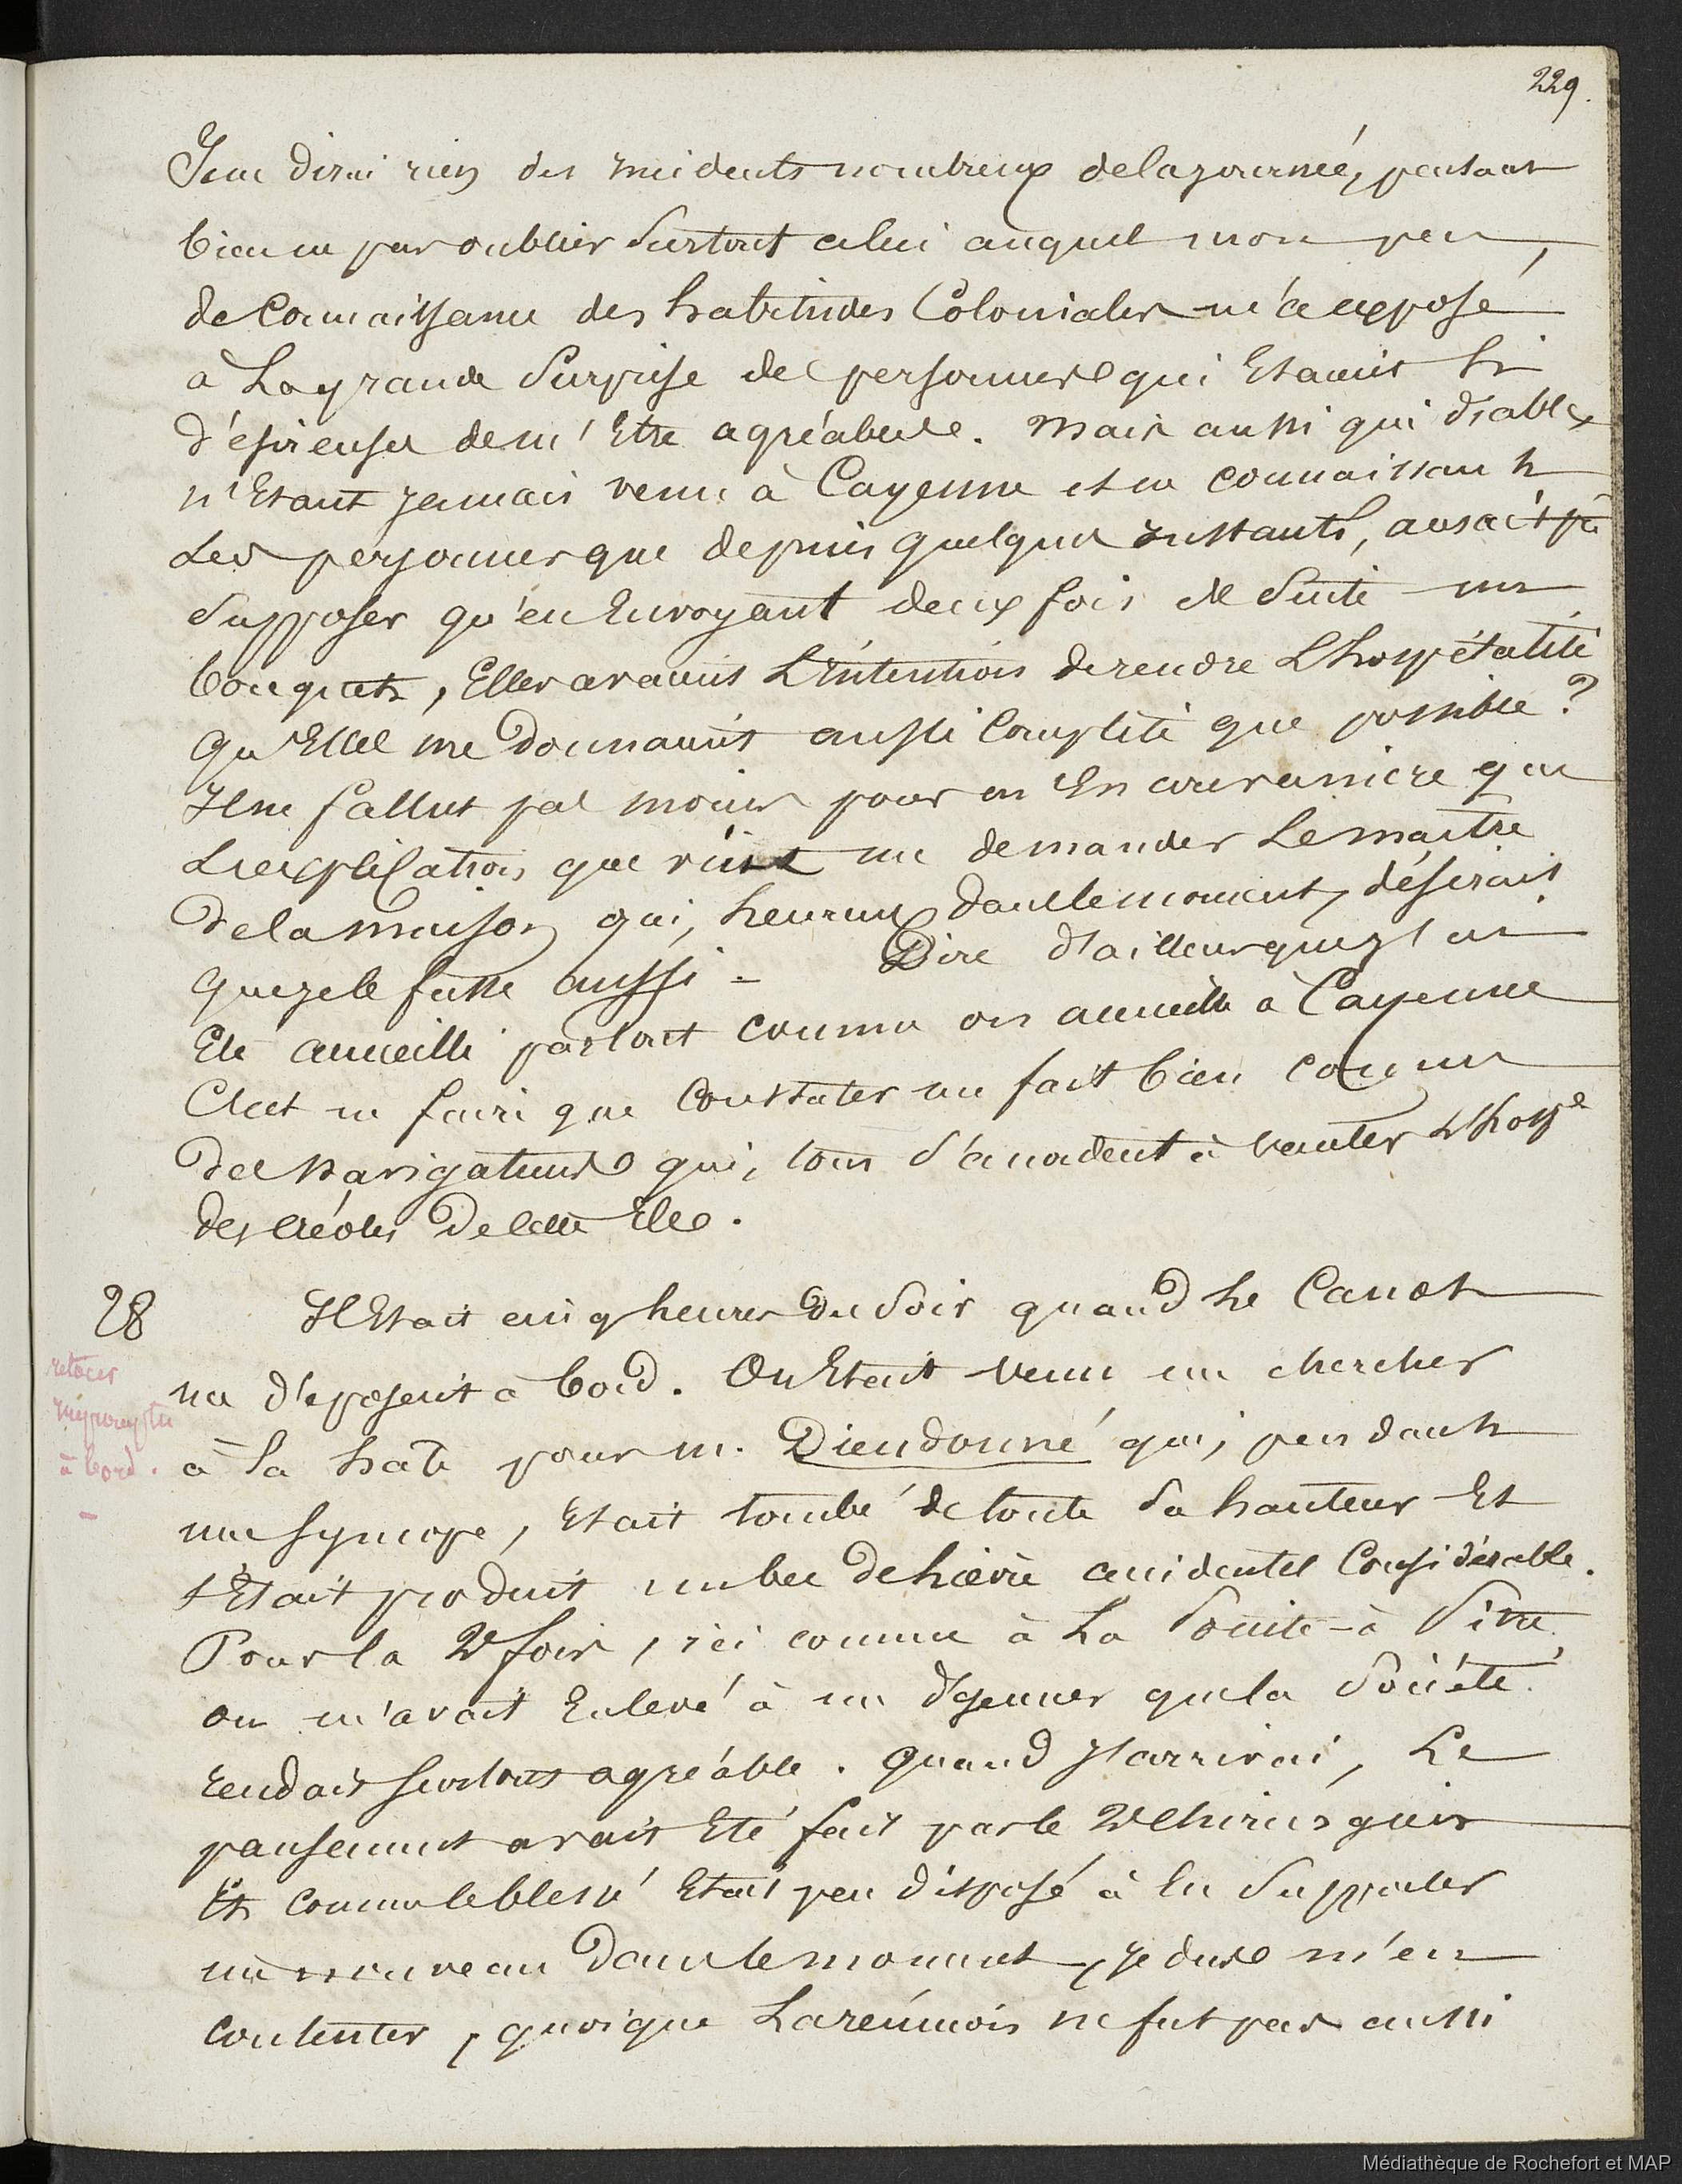 229.
Je ne dirai rien des incidents nombreux de la journée, pensant
bien ne pas oublier surtout celui auquel mon peu,
de Connaissance des habitudes Coloniales m'a exposé
à La grande Surprise de personnes qui Etaient Si
désireuses de m'Etre agréables. Mais aussi qui diable,
n'Etant jamais venu à Cayenne et ne connaissant
Les personnes que depuis quelques instants, aurait pû
Supposer qu'en Envoyant deux fois de Suite un
bouquet, Elles avaient L'intention de rendre L'hospitalité
qu'Elles me Donnaient aussi Complète que possible?
Il ne fallut pas moins pour m'En convaincre que
L'explication que vint me demander Le maître
De la maison qui, heureux Dans le moment, désirait
que je le fusse aussi - Dire d'ailleurs que j'ai
Eté accueilli partout comme on accueille à Cayenne
C'est ne faire que Constater un fait bien connu
Des Navigateurs qui, tous s'accordent à vanter L'hosp.é
des Créoles De cette Ile.
28 Il Etait cinq heures Du Soir quand Le Canot
retour
impromptu
à bord.
me déposait à bord. On Etait venu me chercher
à la hate pour m. Dieudonné qui, pendant
une Syncope, Etait tombé de toute Sa hauteur Et
s'Etait produit un bec De lièvre accidentel Considérable.
Pour la 2e fois, ici comme à La Pointe-à Pitre,
on m'avait Enlevé à un déjeuner que la Société
rendait surtout agréable. Quand J'arrivai, Le
pansement avait Eté fait par le 2e Chirurgien
Et comme le blessé Etait peu disposé à En Supporter
un nouveau Dans le moment, je dus m'en
contenter, quoique La réunion ne fut pas aussi
Médiathèque de Rochefort et MAP